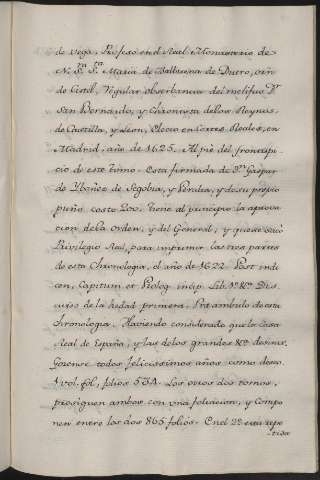 de Vega, Profeso en el Real Monasterio de
N. Sra. Sra. Maria de Balbuena de Duero, orñ
de Cistel, Regular observancia del melifuo Pe.
San Bernardo, y Chronista de los Reynos,
de Castilla, y Leon, Electo en Cortes Reales, en
Madrid, año de 1625. Al pie del frontispi
cio de este tomo. Esta firmada de Dn. Gaspar
de Ybañez de Segobia, y Peralta, y de su propio
puño costo 200. Tiene al principio la aprova
cion de la Orden, y del General; y que se sacó
Privilegio Real, para imprimir las tres partes
de esta Chronologia, el año de 1622. Post indi
cen, Capitum et Prolog. incip. Lib. 1º Rl. Dis
curso de la hedad primera. Preambulo de esta
Chronologia. Haviendo considerado que la Casa
Real de España, y las de los grandes Rl. desinit.
Gocence todos felicissimos años como deseo.
1 vol. fol., folios 534. Los otros dos tomos,
prosiguen ambos con una foliacion, y Compo
nen entre los dos 865 folios. En el 2º esta repe
-tidos